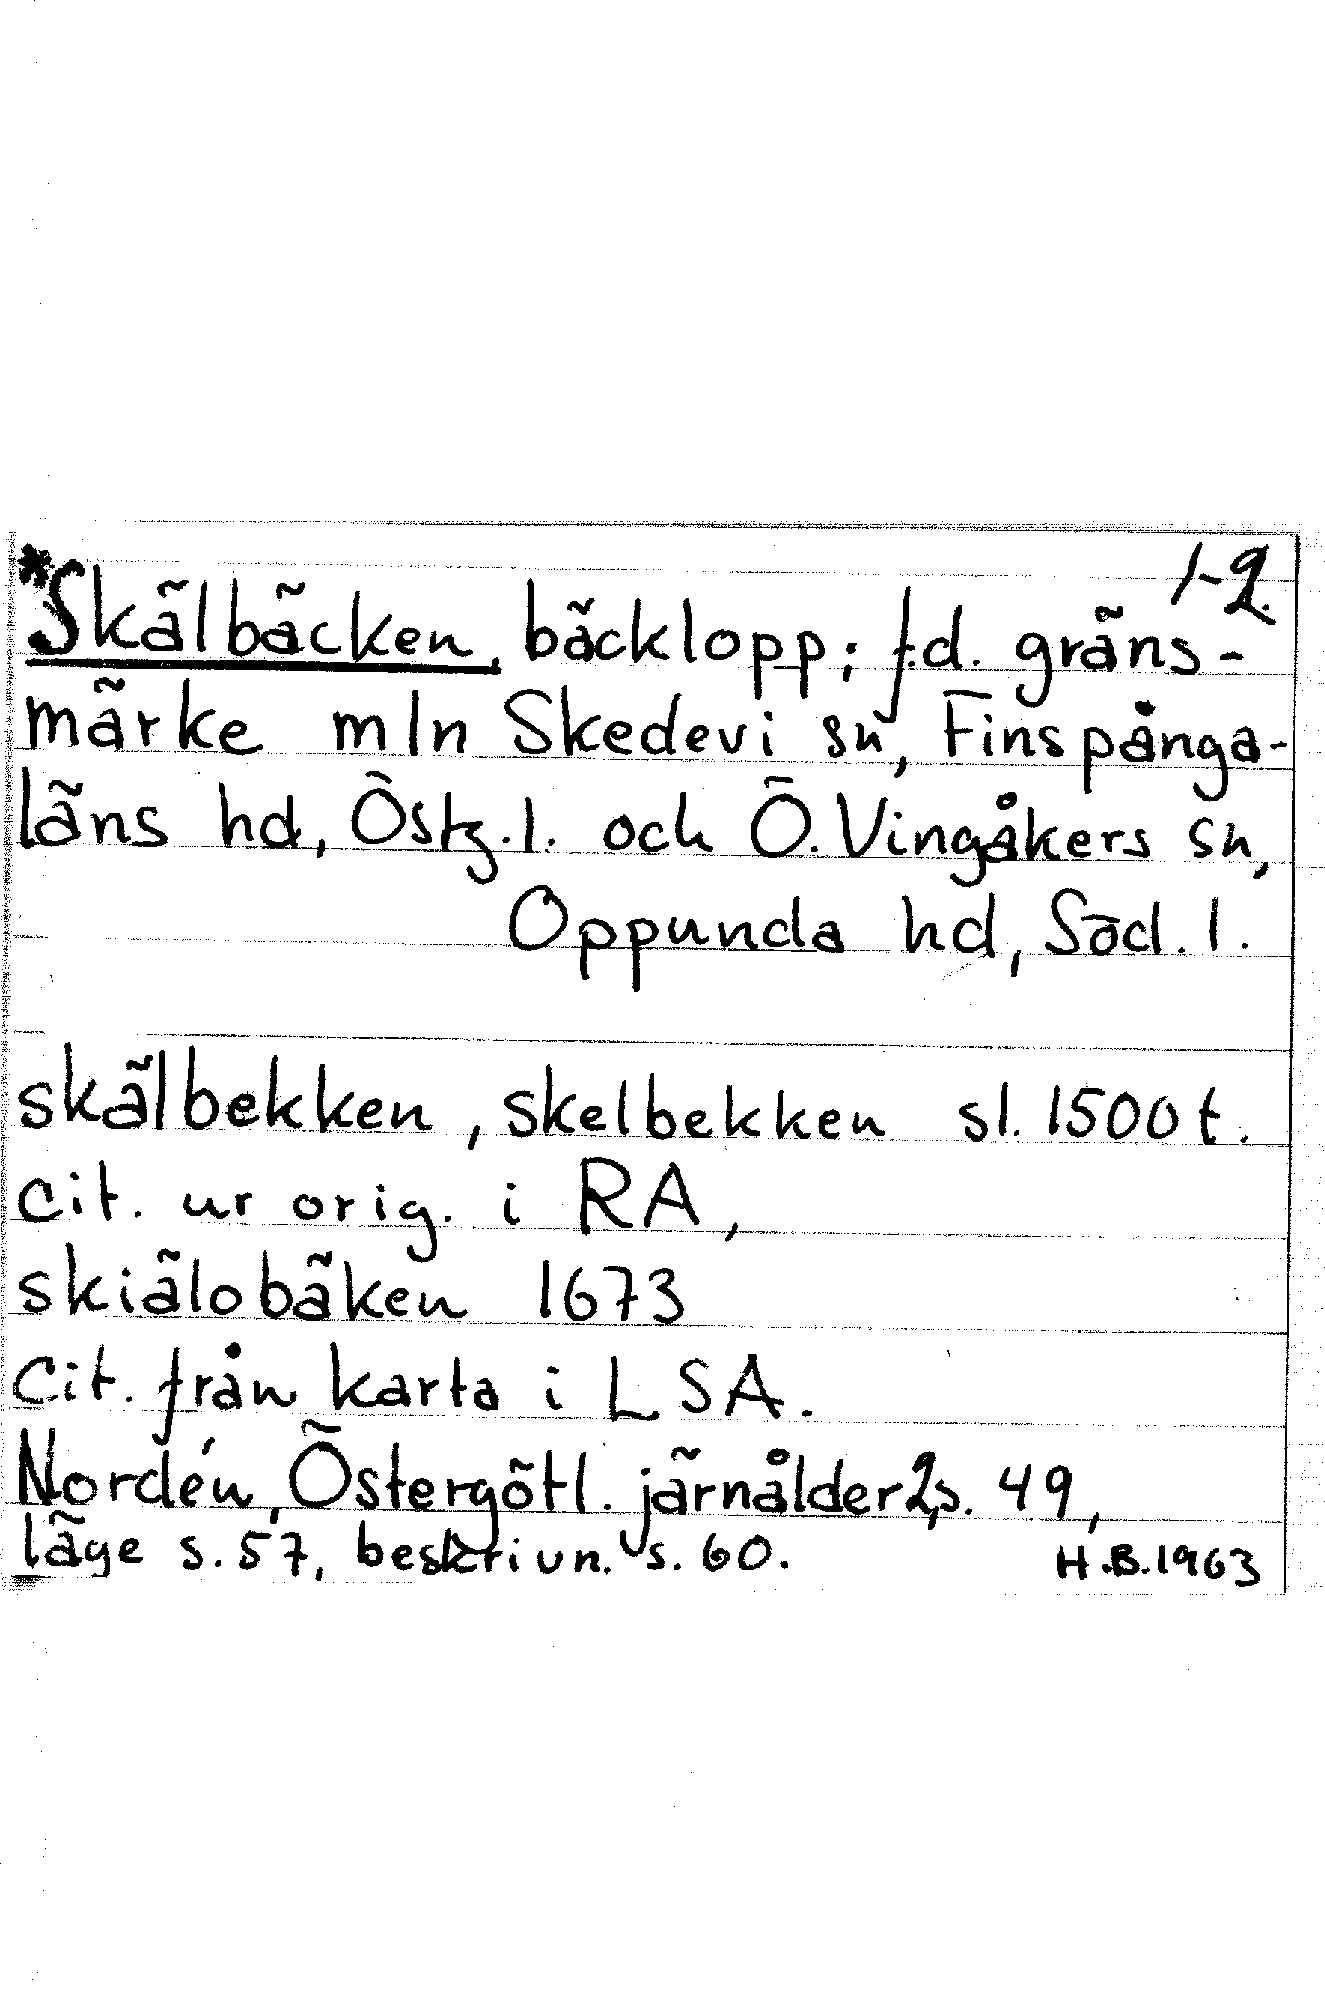 1-2.
*Skälbäcken, bäcklopp; f.d. gräns-
märke mln Skedevi sn, Finspånga-
läns hd, Östg.l. och Ö. Vingåkers sn,
Oppunda hd, Söd. l.
skälbekken, skelbekken sl. 1500t.
cit. ur orig. i RA,
skiälobäken 1673
cit. från karta i LSA.
Nordén, Östergötl. järnålder 2, s. 49,
läge s. 57, beskrivn. s. 60.
H.B. 1963